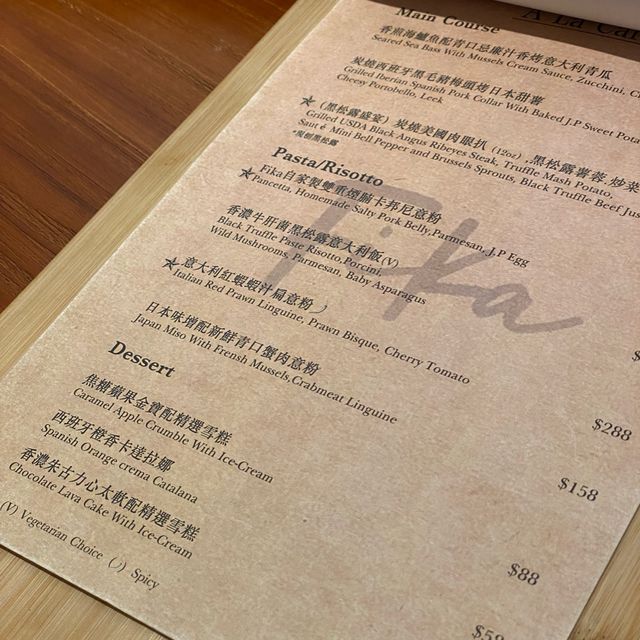 A La Car
Main Course
香煎海鱸魚配青口忌廉汁香烤意大利青瓜
Seared Sea Bass With Mussels Cream Sauce, Zucchini, Ch
炭燒西班牙黑毛豬梅頭烤日本甜薯
Grilled Iberian Spanish Pork Collar With Baked J.P Sweet Pota
Cheesy Portobello, Leek
★ (黑松露盛宴) 炭燒美國肉眼扒 (12oz) ,黑松露薯蓉,炒菜
Grilled USDA Black Angus Ribeyes Steak, Truffle Mash Potato,
Saut é Mini Bell Pepper and Brussels Sprouts, Black Truffle Beef Jus
Pasta/Risotto
★ Fika自家製雙重煙腩卡邦尼意粉
Pancetta, Homemade Salty Pork Belly,Parmesan,J.P Egg
香濃牛肝菌黑松露意大利飯(V)
Black Truffle Paste Risotto,Porcini,
Wild Mushrooms, Parmesan, Baby Asparagus
★ 意大利紅蝦蝦汁扁意粉
Italian Red Prawn Linguine, Prawn Bisque, Cherry Tomato
日本味增配新鮮青口蟹肉意粉
Japan Miso With Frensh Mussels,Crabmeat Linguine
Fika
$288
$158
$88
Dessert
焦糖蘋果金寶配精選雪糕
Caramel Apple Crumble With Ice-Cream
西班牙橙香卡達拉娜
Spanish Orange crema Catalana
香濃朱古力心太軟配精選雪糕
Chocolate Lava Cake With Ice-Cream
(V) Vegetarian Choice () Spicy